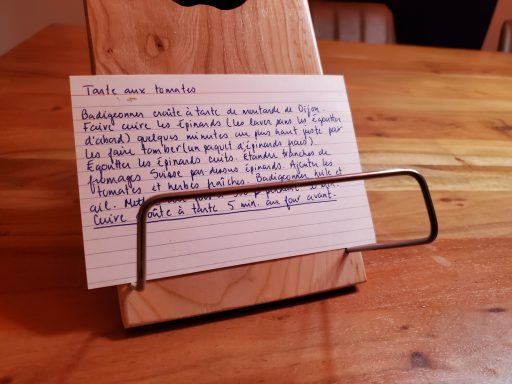 Tarte aux tomates
Badigeonner croûte à tarte de moutarde de Dijon.
Faire cuire les Épinards (les laver sans les Égoutter
d'abord) quelques minutes au plus haut juste pour
les faire tomber (un paquet d'épinards frais)
Égoutter les Épinards cuits. Étendre tranches de
fromages Suisse par-dessus épinards. Ajouter les
tomates et herbes fraîches. Badigeonner huile et
ail. pendant min.
Cuire croûte à tarte 5 min. au four avant.